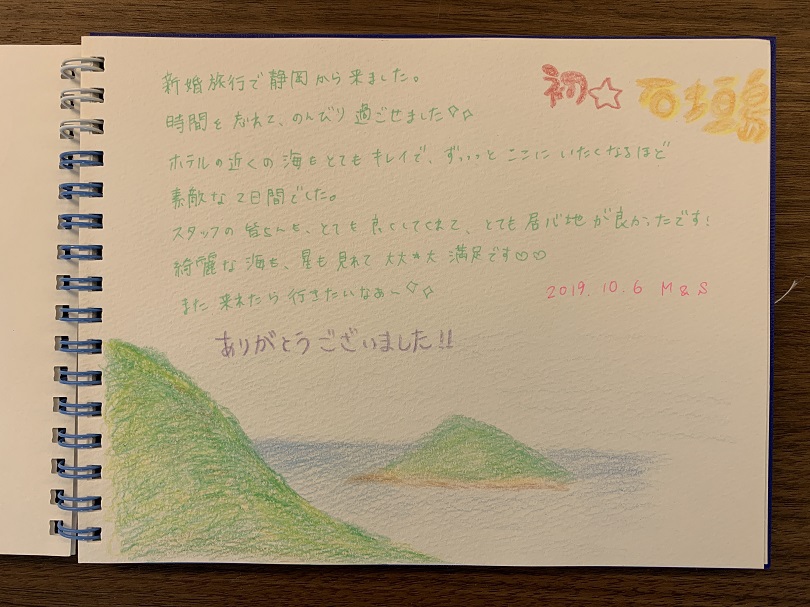 初☆石垣島
新婚旅行で静岡から来ました。
時間を忘れて、のんびり過ごせました♡♡
ホテルの近くの海もとてもキレイで、ずっっっとここにいたくなるほど
素敵な2日間でした。
スタッフの皆さんも、とても良くしてくれて、とても居心地が良かったです!
綺麗な海も、星も見れて大大大満足です♡♡
また来れたら行きたいなぁ〜♡♡
2019.10.6 M&S
ありがとうございました!!